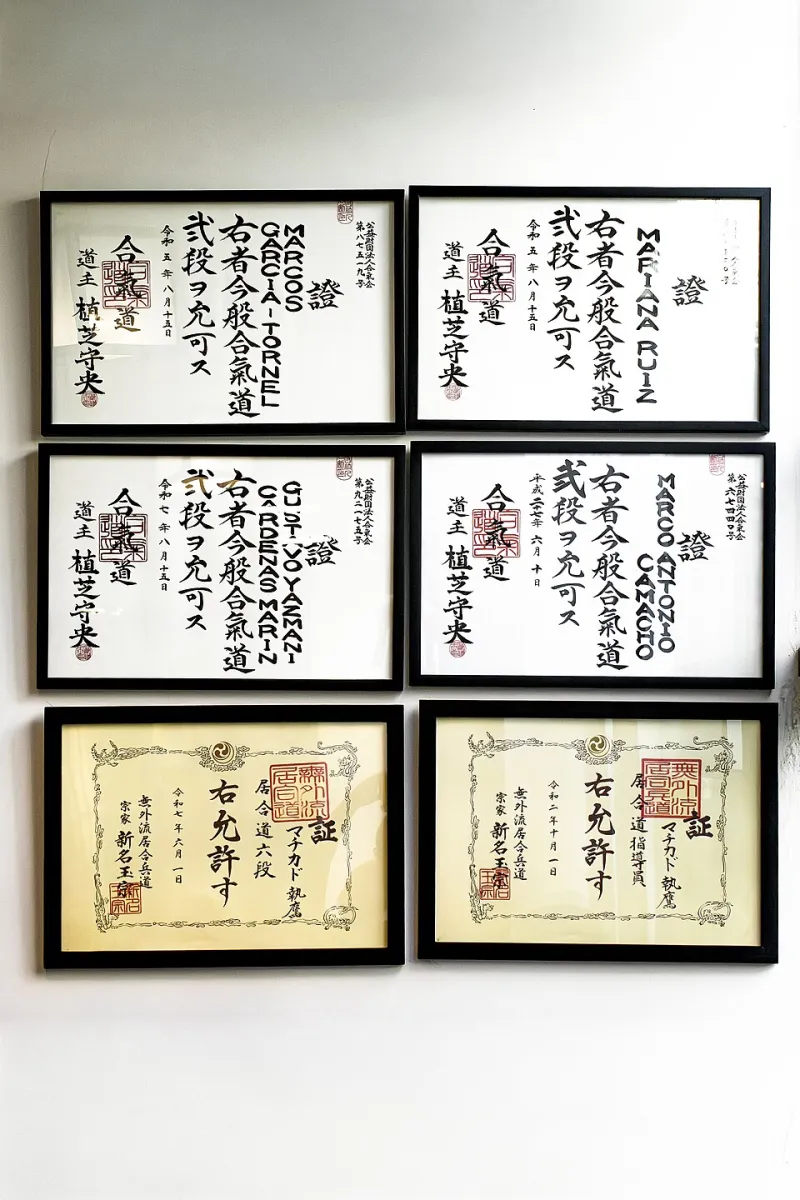 公益財団法人合気会
第八七五一九号
證
MARCOS
GARCIA-TORNEL
右者今般合氣道
弐段ヲ允可ス
令和五年八月十五日
合氣道
道主 植芝守央
證
MARIANA RUIZ
右者今般合氣道
弐段ヲ允可ス
令和五年八月十五日
合氣道
道主 植芝守央
公益財団法人合気会
第九二一七五号
證
GUSTAVO YAZMANI
CARDENAS MARIN
右者今般合氣道
弐段ヲ允可ス
令和七年八月十五日
合氣道
道主 植芝守央
公益財団法人合気会
第六七四四〇号
證
MARCO ANTONIO
CAMACHO
右者今般合氣道
弐段ヲ允可ス
平成二十七年六月十日
合氣道
道主 植芝守央
証
マチカド 執鷹
居合道六段
右允許す
令和七年六月一日
無外流居合兵道
宗家 新名玉宗
証
マチカド 執鷹
居合道指導員
右允許す
令和二年十月一日
無外流居合兵道
宗家 新名玉宗